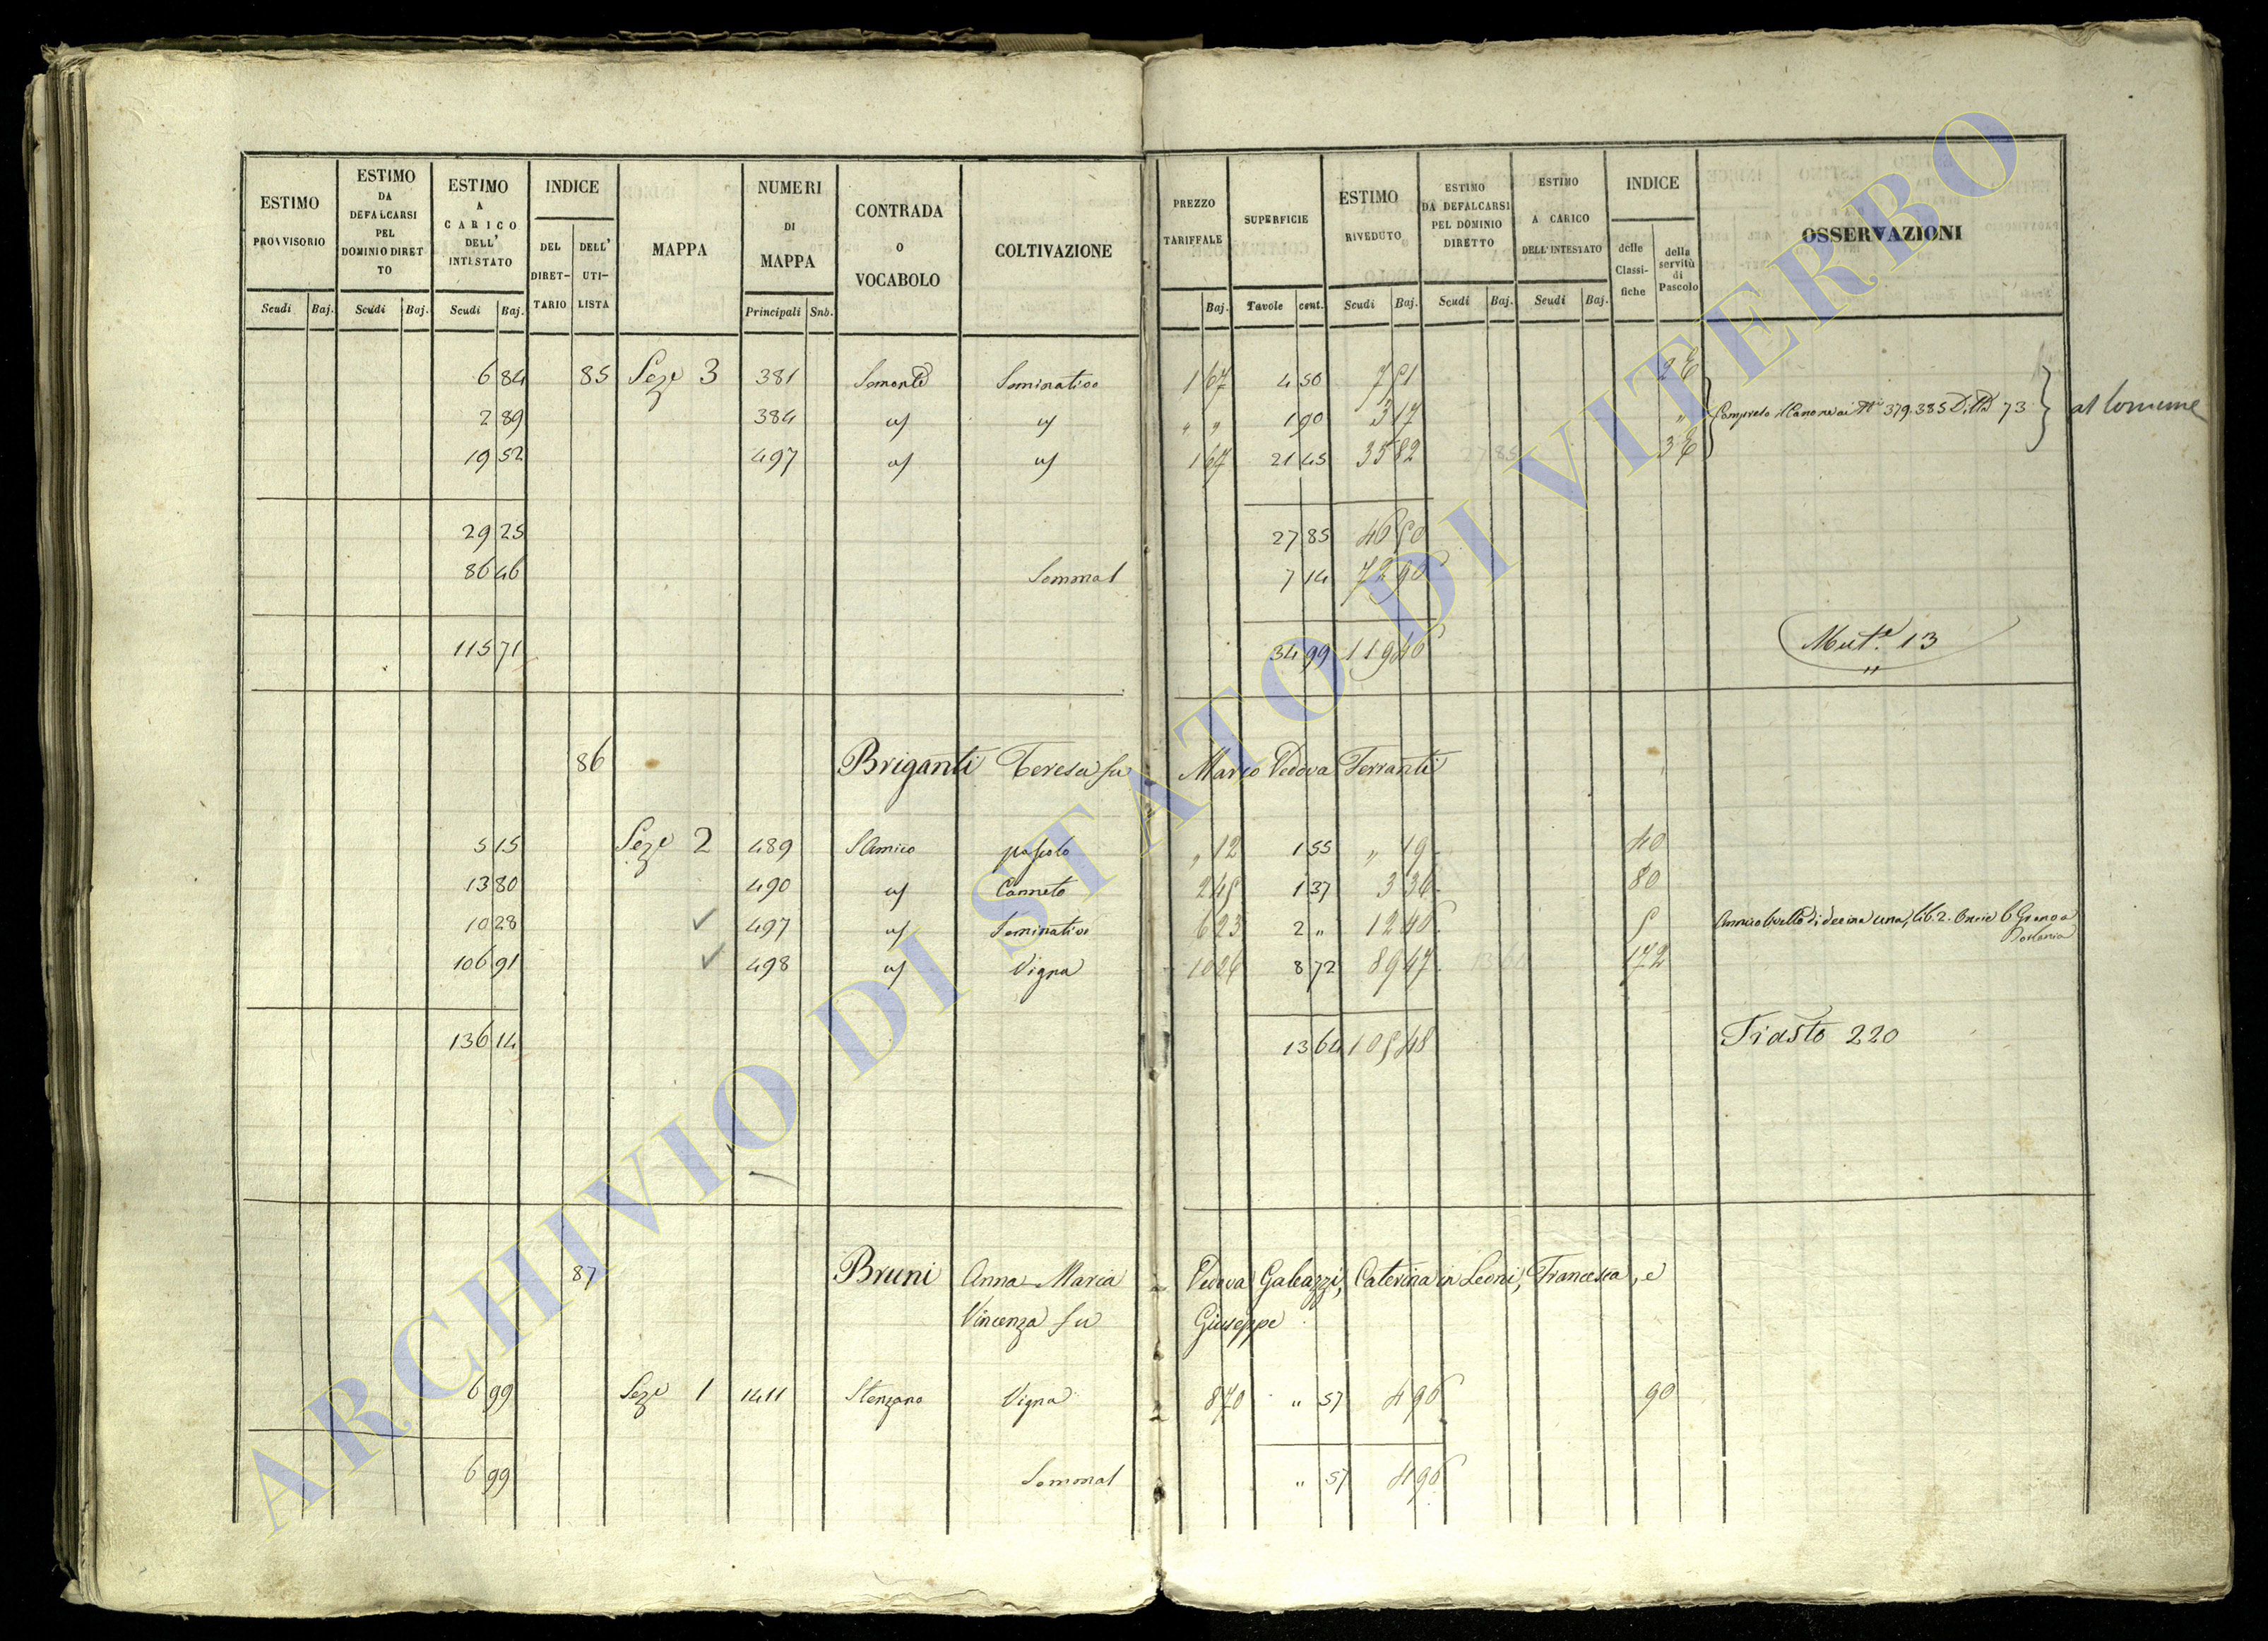 ESTIMO PROVVISORIO Scudi Baj. ESTIMO DA DEFALCARSI PEL DOMINIO DIRETTO Scudi Baj. ESTIMO A CARICO DELL' INTESTATO Scudi Baj. INDICE DEL DIRET-TARIO DELL' UTI-LISTA MAPPA NUMERI DI MAPPA Principali Sub. CONTRADA O VOCABOLO COLTIVAZIONE PREZZO TARIFFALE Baj. SUPERFICIE Tavole cent. ESTIMO RIVEDUTO Scudi Baj. ESTIMO DA DEFALCARSI PEL DOMINIO DIRETTO Scudi Baj. ESTIMO A CARICO DELL'INTESTATO Scudi Baj. INDICE delle Classi-fiche della servitù di Pascolo OSSERVAZIONI
6 84 85 Seze 3 381 Seminativo 1 67 4 50 7 51 2
2 89 384 " " 1 90 3 17 " 379.385 Ditta 73 al Comune
19 52 497 1 67 21 45 35 82 3
29 25 27 85 46 50
86 46 Sommal 7 14 72 96
115 71 34 99 119 46 Mut.e 13
86 Briganti Teresa fu Marco Vedova Ferranti
5 15 Seze 2 489 S Amico pascolo " 12 1 55 " 19 40
13 80 490 Canneto 2 45 1 37 3 36 80
10 28 497 Seminativo 6 23 2 " 12 46 5
106 91 498 Vigna 10 26 8 72 89 47 172
136 14 13 64 105 48 Trasto 220
87 Bruni Anna Maria Vedova Galeazzi, Caterina in Leoni, Francesca, e
Vincenza fu Giuseppe
6 99 Seze 1 1411 Stenzano Vigna 8 70 " 57 4 96 90
6 99 Sommal " 57 4 96
ARCHIVIO DI STATO DI VITERBO